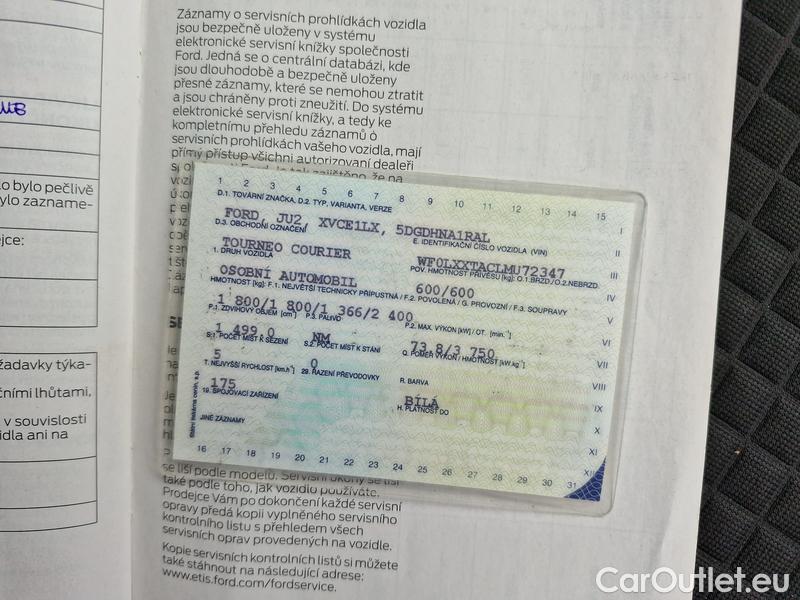 Záznamy o servisních prohlídkách vozidla
jsou bezpečně uloženy v systému
elektronické servisní knížky společnosti
Ford. Jedná se o centrální databázi, kde
jsou dlouhodobě a bezpečně uloženy
přesné záznamy, které se nemohou ztratit
a jsou chráněny proti zneužití. Do systému
elektronické servisní knížky, a tedy ke
kompletnímu přehledu záznamů o
servisních prohlídkách vašeho vozidla, mají
přímý přístup všichni autorizovaní dealeři
lo bylo pečlivě
ylo zazname-
ejce:
žadavky týka-
čními lhůtami,
v souvislosti
idla ani na
1 2 3 4 5 6 7 8 9 10 11 12 13 14 15
D.1. TOVÁRNÍ ZNAČKA, D.2. TYP, VARIANTA, VERZE
FORD, JU2, XVCE1LX, 5DGDHNA1RAL
D.3. OBCHODNÍ OZNAČENÍ E. IDENTIFIKAČNÍ ČÍSLO VOZIDLA (VIN)
TOURNEO COURIER WF0LXXTACLMU72347
1. DRUH VOZIDLA POV. HMOTNOST PŘÍVĚSU [kg]: O.1.BRZD./O.2.NEBRZD.
OSOBNÍ AUTOMOBIL 600/600
HMOTNOST [kg]: F.1. NEJVĚTŠÍ TECHNICKY PŘÍPUSTNÁ / F.2. POVOLENÁ / G. PROVOZNÍ / F.3. SOUPRAVY
1 800/1 800/1 366/2 400
P.1. ZDVIHOVÝ OBJEM [cm³] P.3. PALIVO P.2. MAX. VÝKON [kW] / OT. [min.⁻¹]
1 499,0 NM 73,8/3 750
S.1. POČET MÍST K SEZENÍ S.2. POČET MÍST K STÁNÍ Q. POMĚR VÝKON / HMOTNOST [kW.kg⁻¹]
5 0
T. NEJVYŠŠÍ RYCHLOST [km.h⁻¹] 29. ŘAZENÍ PŘEVODOVKY R. BARVA
175 BÍLÁ
19. SPOJOVACÍ ZAŘÍZENÍ H. PLATNOST DO
JINÉ ZÁZNAMY
I
II
III
IV
V
VI
VII
VIII
IX
X
XI
XII
16 17 18 19 20 21 22 23 24 25 26 27 28 29 30 31
se liší podle modelu. Servisní úkony se liší
také podle toho, jak vozidlo používáte.
Prodejce Vám po dokončení každé servisní
opravy předá kopii vyplněného servisního
kontrolního listu s přehledem všech
servisních oprav provedených na vozidle.
Kopie servisních kontrolních listů si můžete
také stáhnout na následující adrese:
www.etis.ford.com/fordservice.
CarOutlet.eu